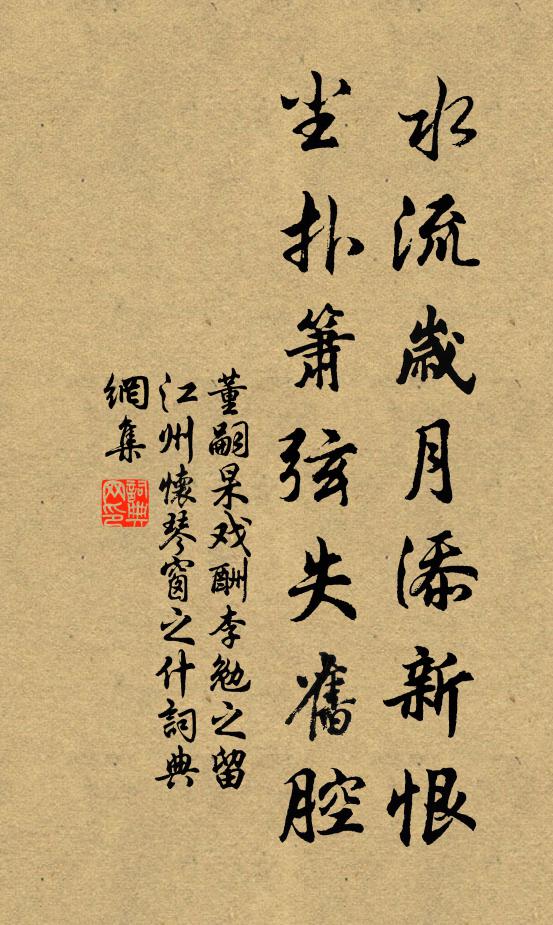 水流歲月添新恨
尘扑箫弦失舊腔
董嗣杲戏酬李勉之留
江州懷琴窗之什詞典
網集
詞典網印